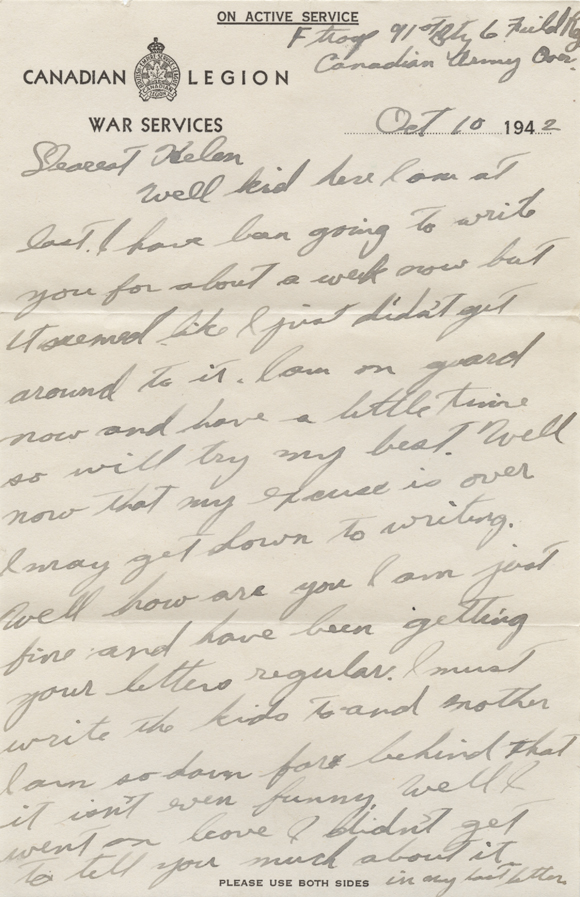 ON ACTIVE SERVICE
F troop 91st Bty 6 Field Reg
Canadian Army Over.
CANADIAN LEGION
WAR SERVICES
Oct 10 1942
Dearest Helen
Well kid here I am at
last. I have been going to write
you for about a week now but
it seemed like I just didn't get
around to it. I am on guard
now and have a little time
so will try my best. Well
now that my excuse is over
I may get down to writing.
Well how are you I am just
fine and have been getting
your letters regular. I must
write the kids to and mother
I am so darn far behind that
it isn't even funny Well I
went on leave I didn't get
to tell you much about it
in my last letter
PLEASE USE BOTH SIDES